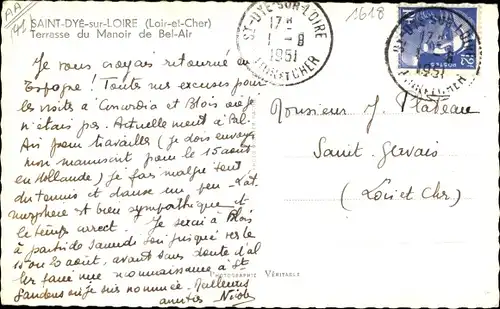 AA
41
SAINT-DYÉ-sur-LOIRE (Loir-et-Cher)
Terrasse du Manoir de Bel-Air
1618
ST-DYÉ-SUR-LOIRE
17 H
1 - 8
1951
LOIR-ET-CHER
ST-DYÉ-SUR-LOIRE
17 H
- 8
1951
LOIR-ET-CHER
POSTES
Je vous croyais retourné en
Espagne ! Toutes mes excuses pour
les visites à et Blois où je
n'étais pas. Actuellement à Bel-
Air pour travailler (je dois envoyer
mon manuscrit pour le 15 août
en Hollande) je fais malgré tout
du tennis et danse un peu. L'at-
mosphère est bien sympathique et
le temps correct. Je serai à Blois
à partir de samedi soir jusque vers le
15 ou 20 août, avant sans doute d'al-
ler faire une à St
où je suis nommée. Meilleures
amitiés Nicole
Monsieur J. Plateau
Saint Gervais
(Loir et Cher)
PHOTOGRAPHIE VÉRITABLE